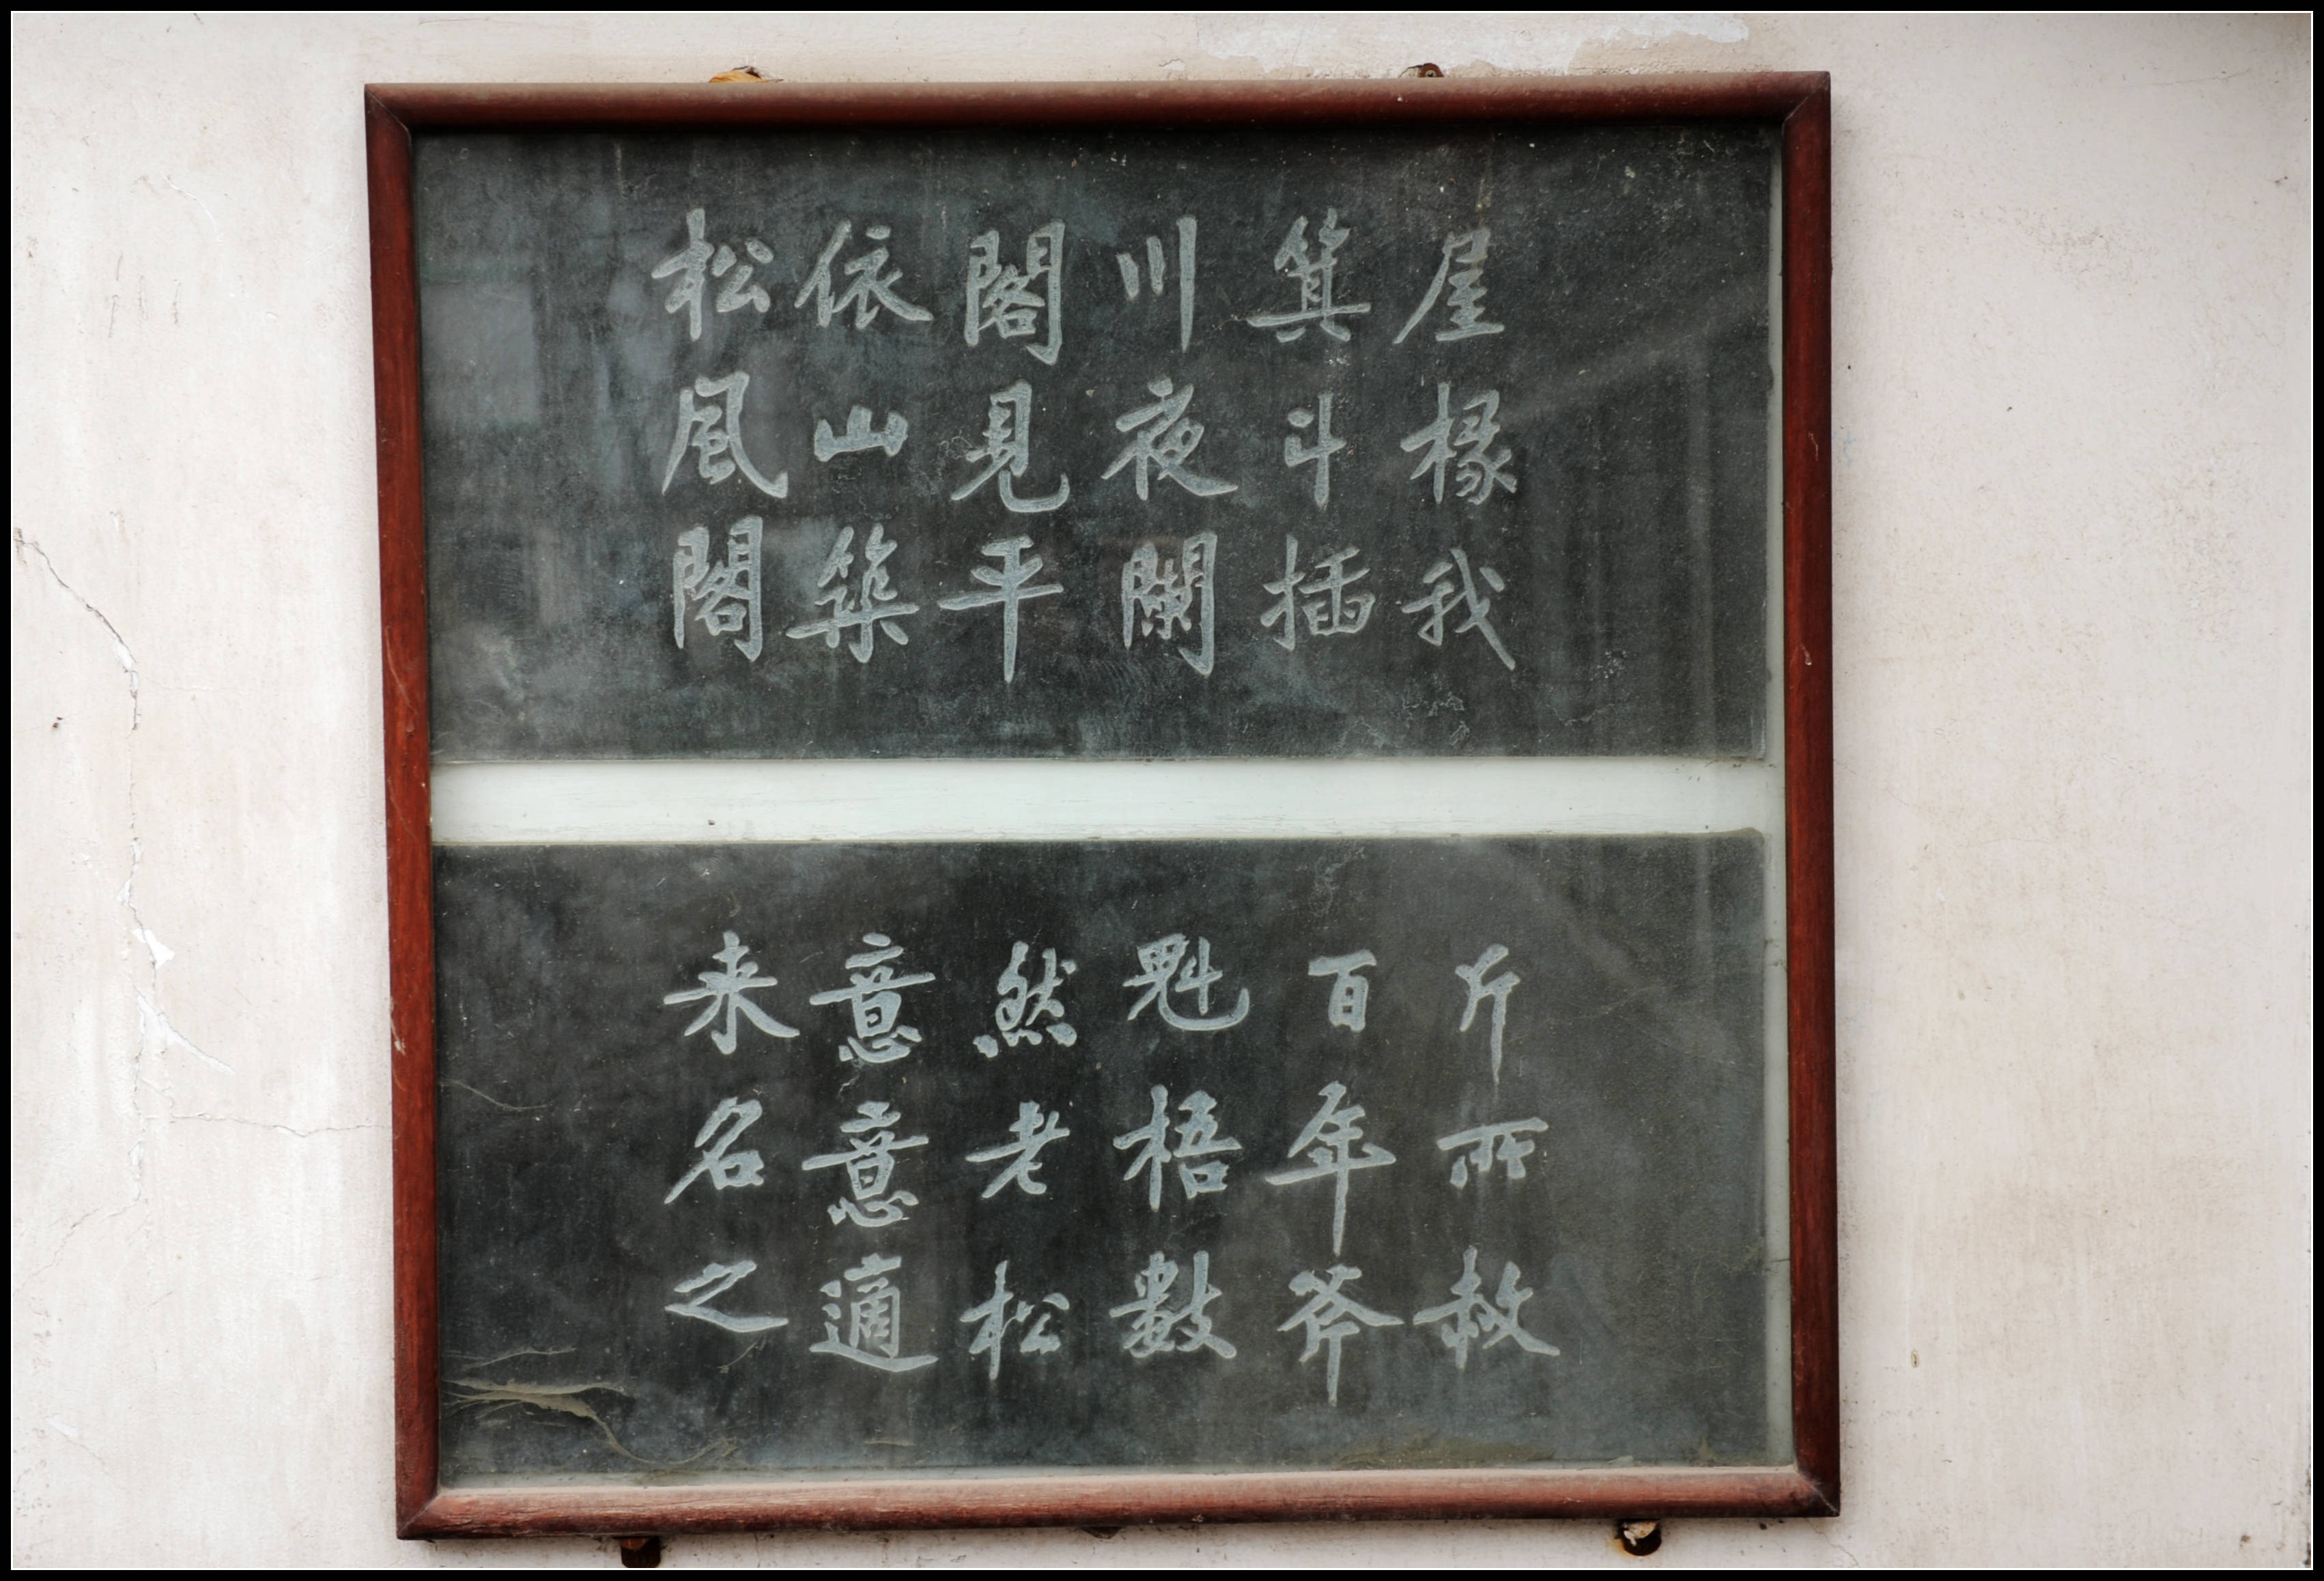 松風閣
依山築
閣見平
川夜闌
箕斗插
屋椽我
来名之
意意適
然老松
魁梧數
百年斧
斤所赦